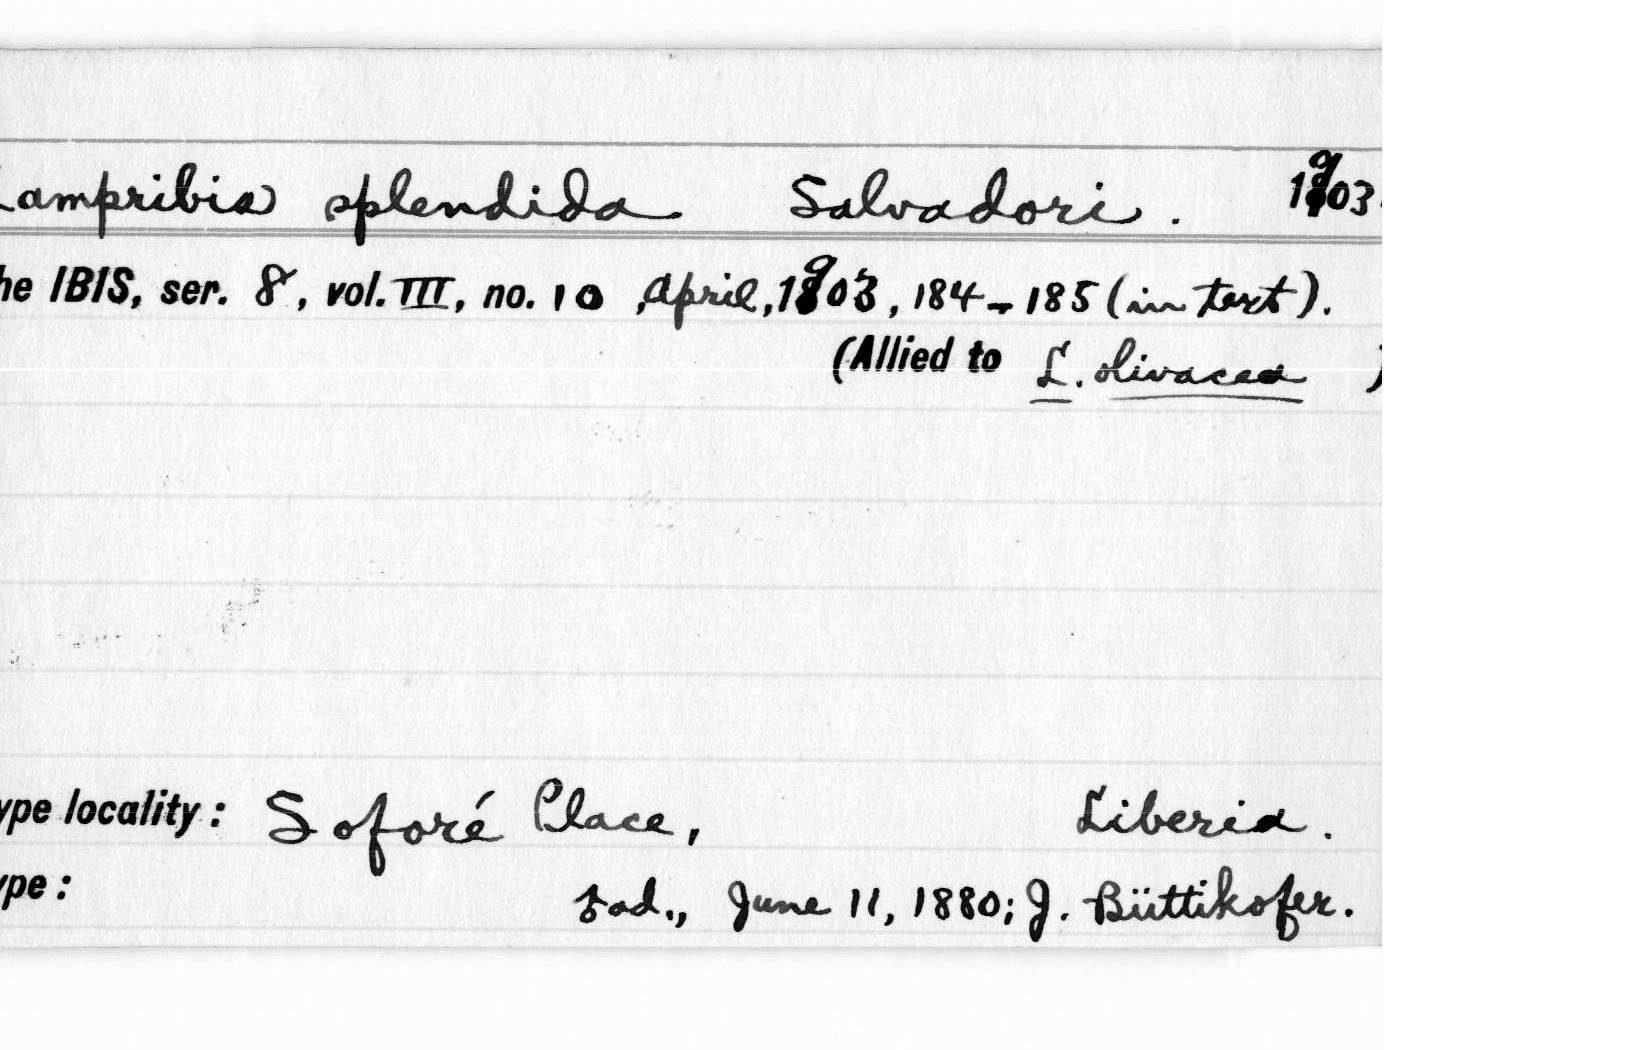 Lampribis splendida Salvadori. 1903.
he IBIS, ser. 8, vol. III, no. 10, April, 1903, 184-185 (in text).
(Allied to L. olivacea)
ype locality: Soforé Place, Liberia.
ype: ad., June 11, 1880; J. Büttikofer.